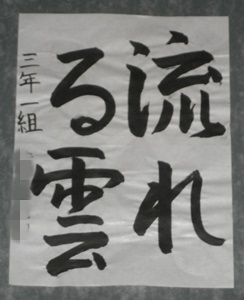 流れ
る雲
三年一組